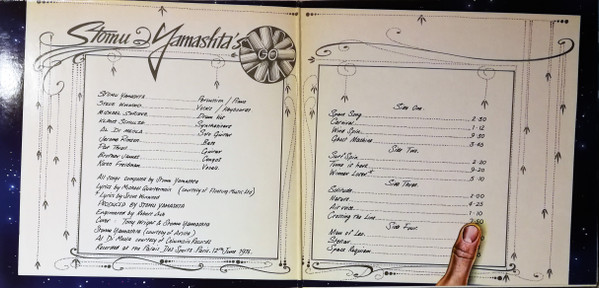 Stomu Yamashta's
GO
Stomu Yamashta Percussion / Piano
Steve Winwood Vocal / Keyboards
Michael Shrieve Drum Kit
Klaus Schulze Synthesisers
Al Di Meola Solo Guitar
Jerome Rimson Bass
Pat Thrall Guitar
Brother James Congas
Karen Friedman Vocal
All songs composed by Stomu Yamashta
Lyrics by Michael Quartermain (Courtesy of Floating Music Ltd)
* Lyrics by Steve Winwood
Produced by Stomu Yamashta
Engineered by Robert Ash
Cover : Tony Wright & Stomu Yamashta
Stomu Yamashta (courtesy of Arista)
Al Di Meola courtesy of Columbia Records
Recorded at the Palais Des Sports Paris 12th June 1976.
Side One.
Space Song 2.30
Carnival 1.12
Wind Spin 9.30
Ghost Machine 3.45
Side Two.
Surf Spin 2.20
Time is here 9.25
Winner Loser* 5.10
Side Three.
Solitude 2.00
Nature 4.25
Air voice 1.10
Crossing the Line
Side Four.
Man of Leo
Stellar
Space Requiem